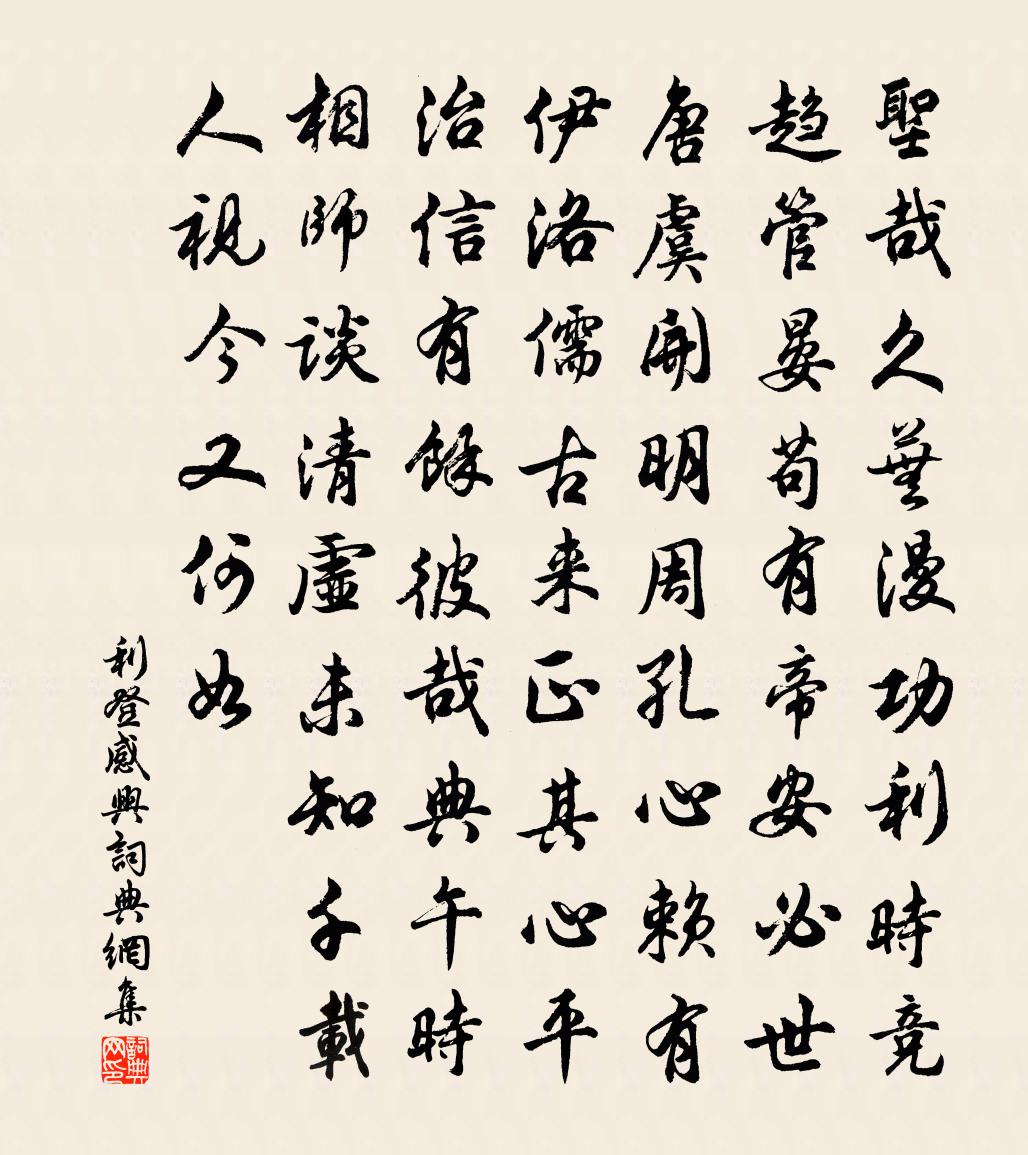 聖哉久蕪漫功利時竞
趋管晏苟有帝安必世
唐虞開明周孔心賴有
伊洛儒古来正其心平
治信有餘彼哉典午時
相師談清虛未知千載
人視今又何如
利登感興詞典網集
詞典网印